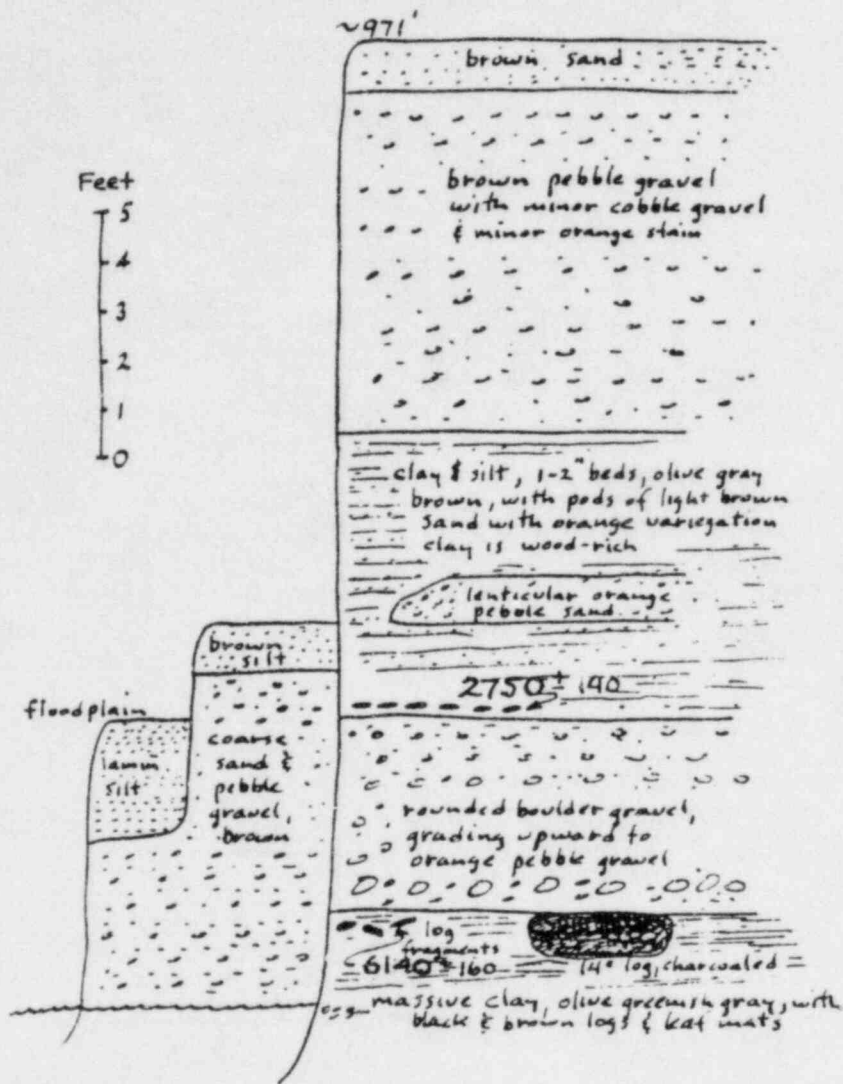 ~971'
brown sand
Feet
5
4
3
2
1
0
brown pebble gravel
with minor cobble gravel
& minor orange stain
clay & silt, 1-2" beds, olive gray
brown, with pods of light brown
sand with orange variegation
clay is wood-rich
lenticular orange
pebble sand
brown
silt
2750 ± 140
floodplain
lamin
silt
coarse
sand &
pebble
gravel,
brown
rounded boulder gravel,
grading upward to
orange pebble gravel
log
fragments
6140 ± 160
14" log, charcoaled
massive clay, olive greenish gray, with
black & brown logs & leaf mats